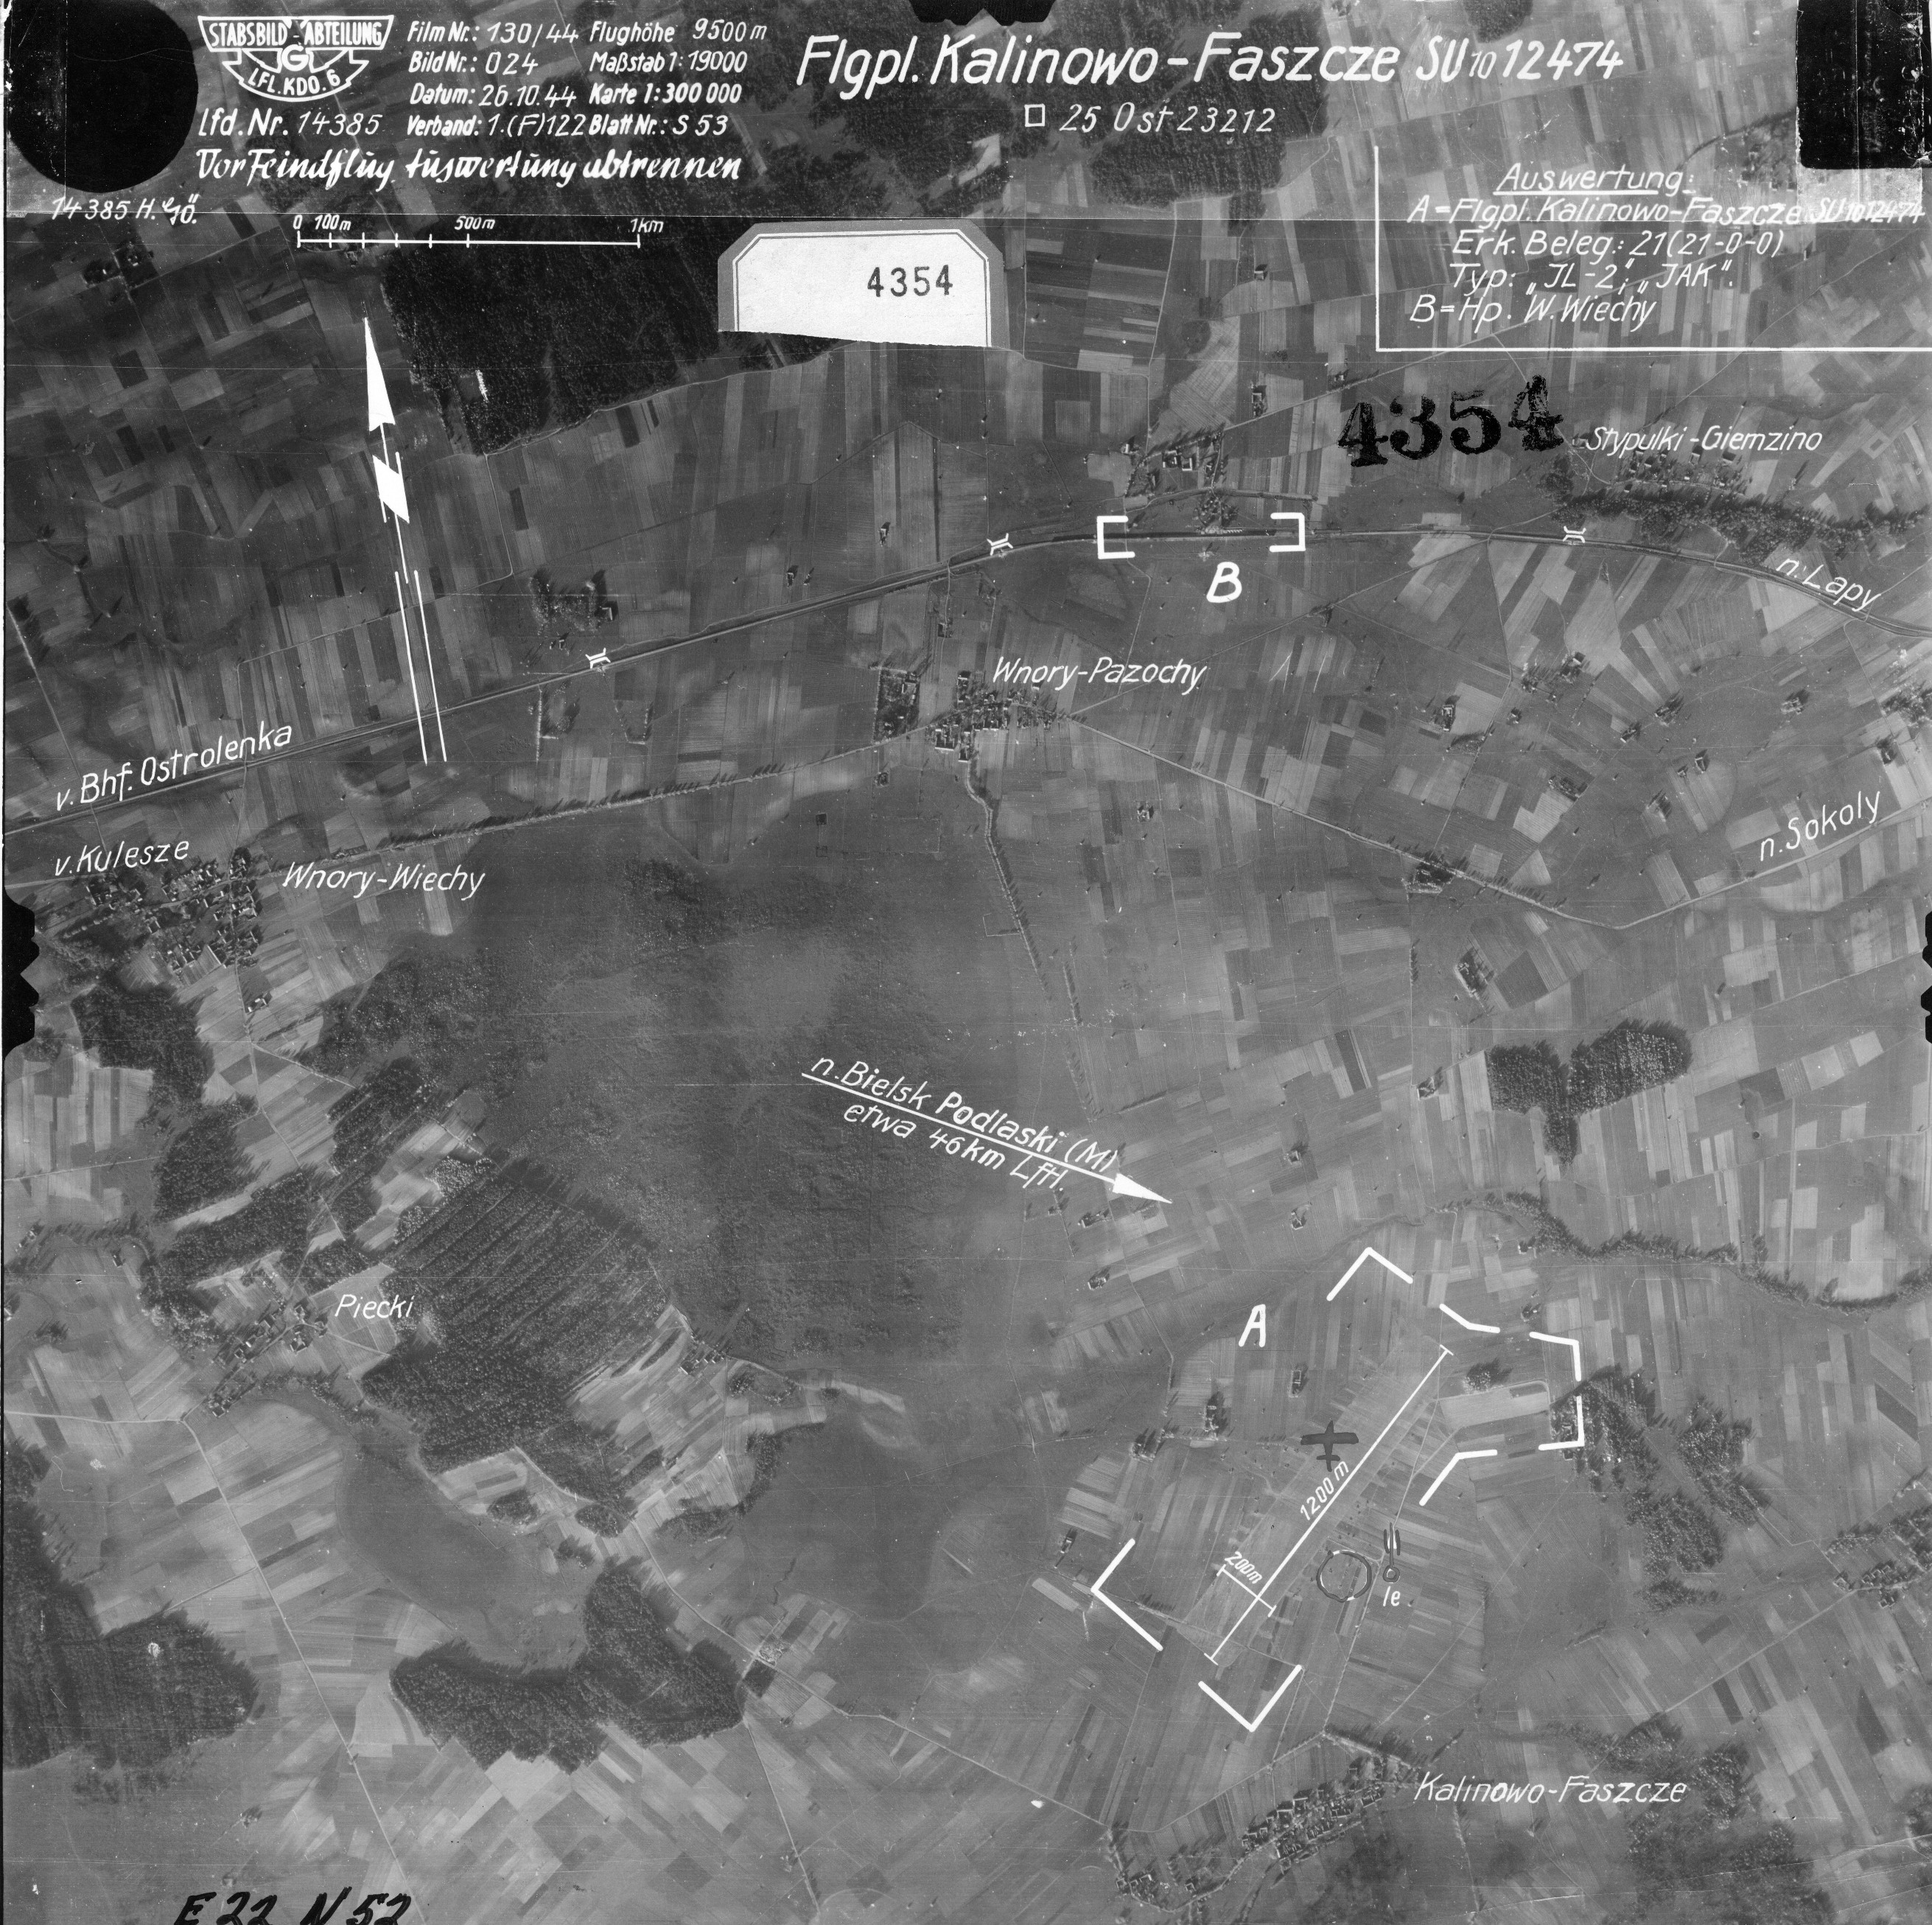 STABSBILD-ABTEILUNG
G
LFL.KDO.6
Film Nr.: 130/44 Flughöhe 9500 m
Bild Nr.: 024 Maßstab 1:19000
Datum: 26.10.44 Karte 1:300 000
Lfd.Nr. 14385 Verband: 1.(F)122 Blatt Nr.: S 53
Vor Feindflug Auswertung abtrennen
14385 H. Gö.
Flgpl. Kalinowo-Faszcze SU 10 12474
□ 25 Ost 23212
0 100m 500m 1km
4354
Auswertung:
A=Flgpl. Kalinowo-Faszcze SU 10 12474
Erk. Beleg.: 21 (21-0-0)
Typ: „JL-2", „JAK".
B=Hp. W. Wiechy
4354
Stypulki-Giemzino
B
n. Lapy
Wnory-Pazochy
v. Bhf. Ostrolenka
n. Sokoly
v. Kulesze
Wnory-Wiechy
n. Bielsk Podlaski (M)
etwa 46km Lftl.
Piecki
A
1200 m
200m
le
Kalinowo-Faszcze
E 22 N 52